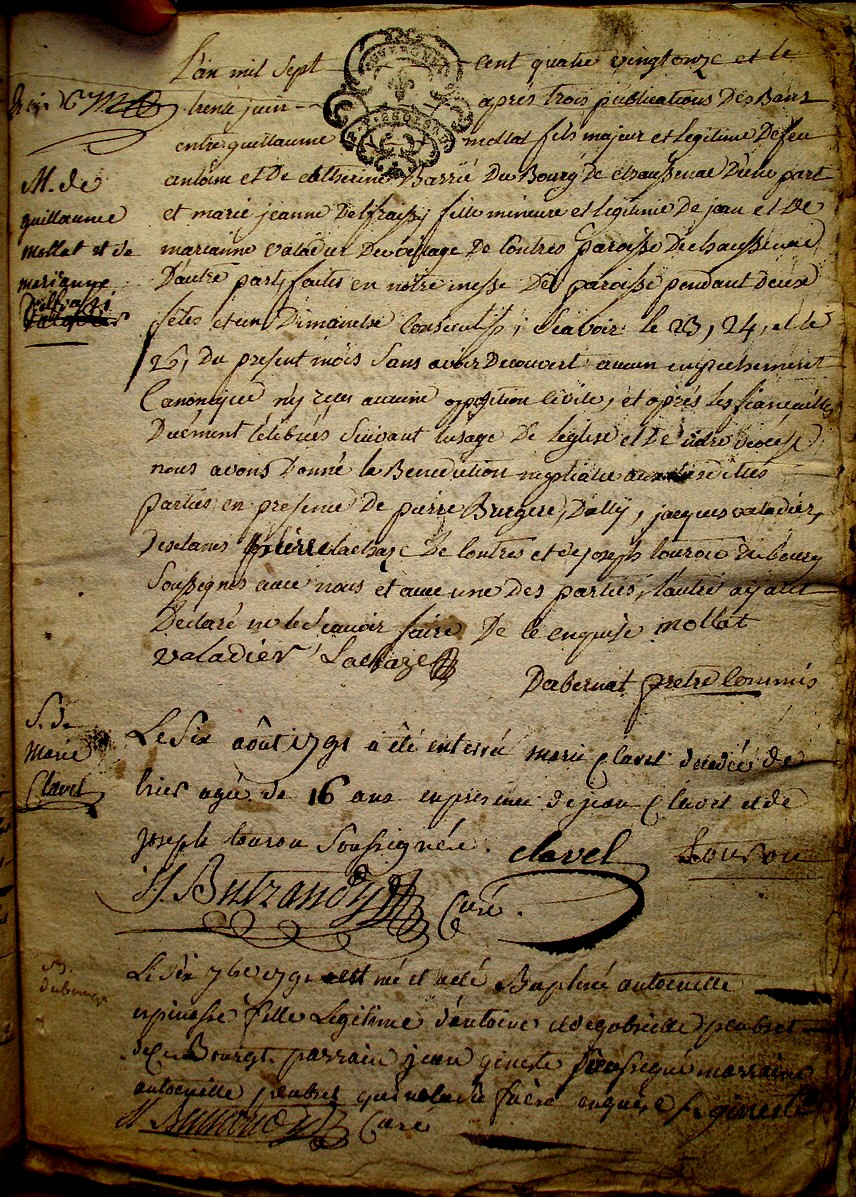 L'an mil sept cent quatre vingt onze et le
trente juin après trois publications Des Bans
entre guillaume mollat fils majeur et legitime De feu
antoine et De catherine Barrié Du Bourg de chaussenac D'une part
et marie jeanne Delfraissi fille mineure et legitime De jean et De
marianne valadier Du village De Contres paroisse De chaussenac
D'autre part, faites en notre messe De paroisse pendant deux
fêtes et un Dimanche Consecutifs, Scavoir le 23, 24, et le
26, du present mois Sans avoir Decouvert aucun empechement
Canonique n'y reçu aucune opposition Civile, et après les fiançailles
Duement Célebrées Suivant l'usage De l'eglise et De Diocèse
nous avons Donné la Benediction nuptiale aux dittes
parties en presence De pierre Brugere, Dally, jacques valadier,
Desclanes pierre Lachaze De Contres et De joseph touron du bourg
Soussignés avec nous et avec une des parties, l'autre ayant
Declaré ne le Scavoir faire De ce enquise mollat
valadier Lachaze
Dabernat pretre Commis
M. de
guillaume
mollat et de
marianne
Delfraissi
valadier
S. de
Marie
Clavel
Le Six aôut 1791 a été enterré marie Clavel decedée de
hier agée de 16 ans en presence de jean Clavel et de
joseph touron Soussignés. clavel Touron
Curé.
Le Six 7bre 1791 est né et a été Baptisée antoinette
espinasse fille Legitime d'antoine et de gabrielle peubrel
de ce Bourgt. parrain jean gineste Soussigné marraine
antoinette peubrel qui n'a sçu faire enquise gineste
Curé